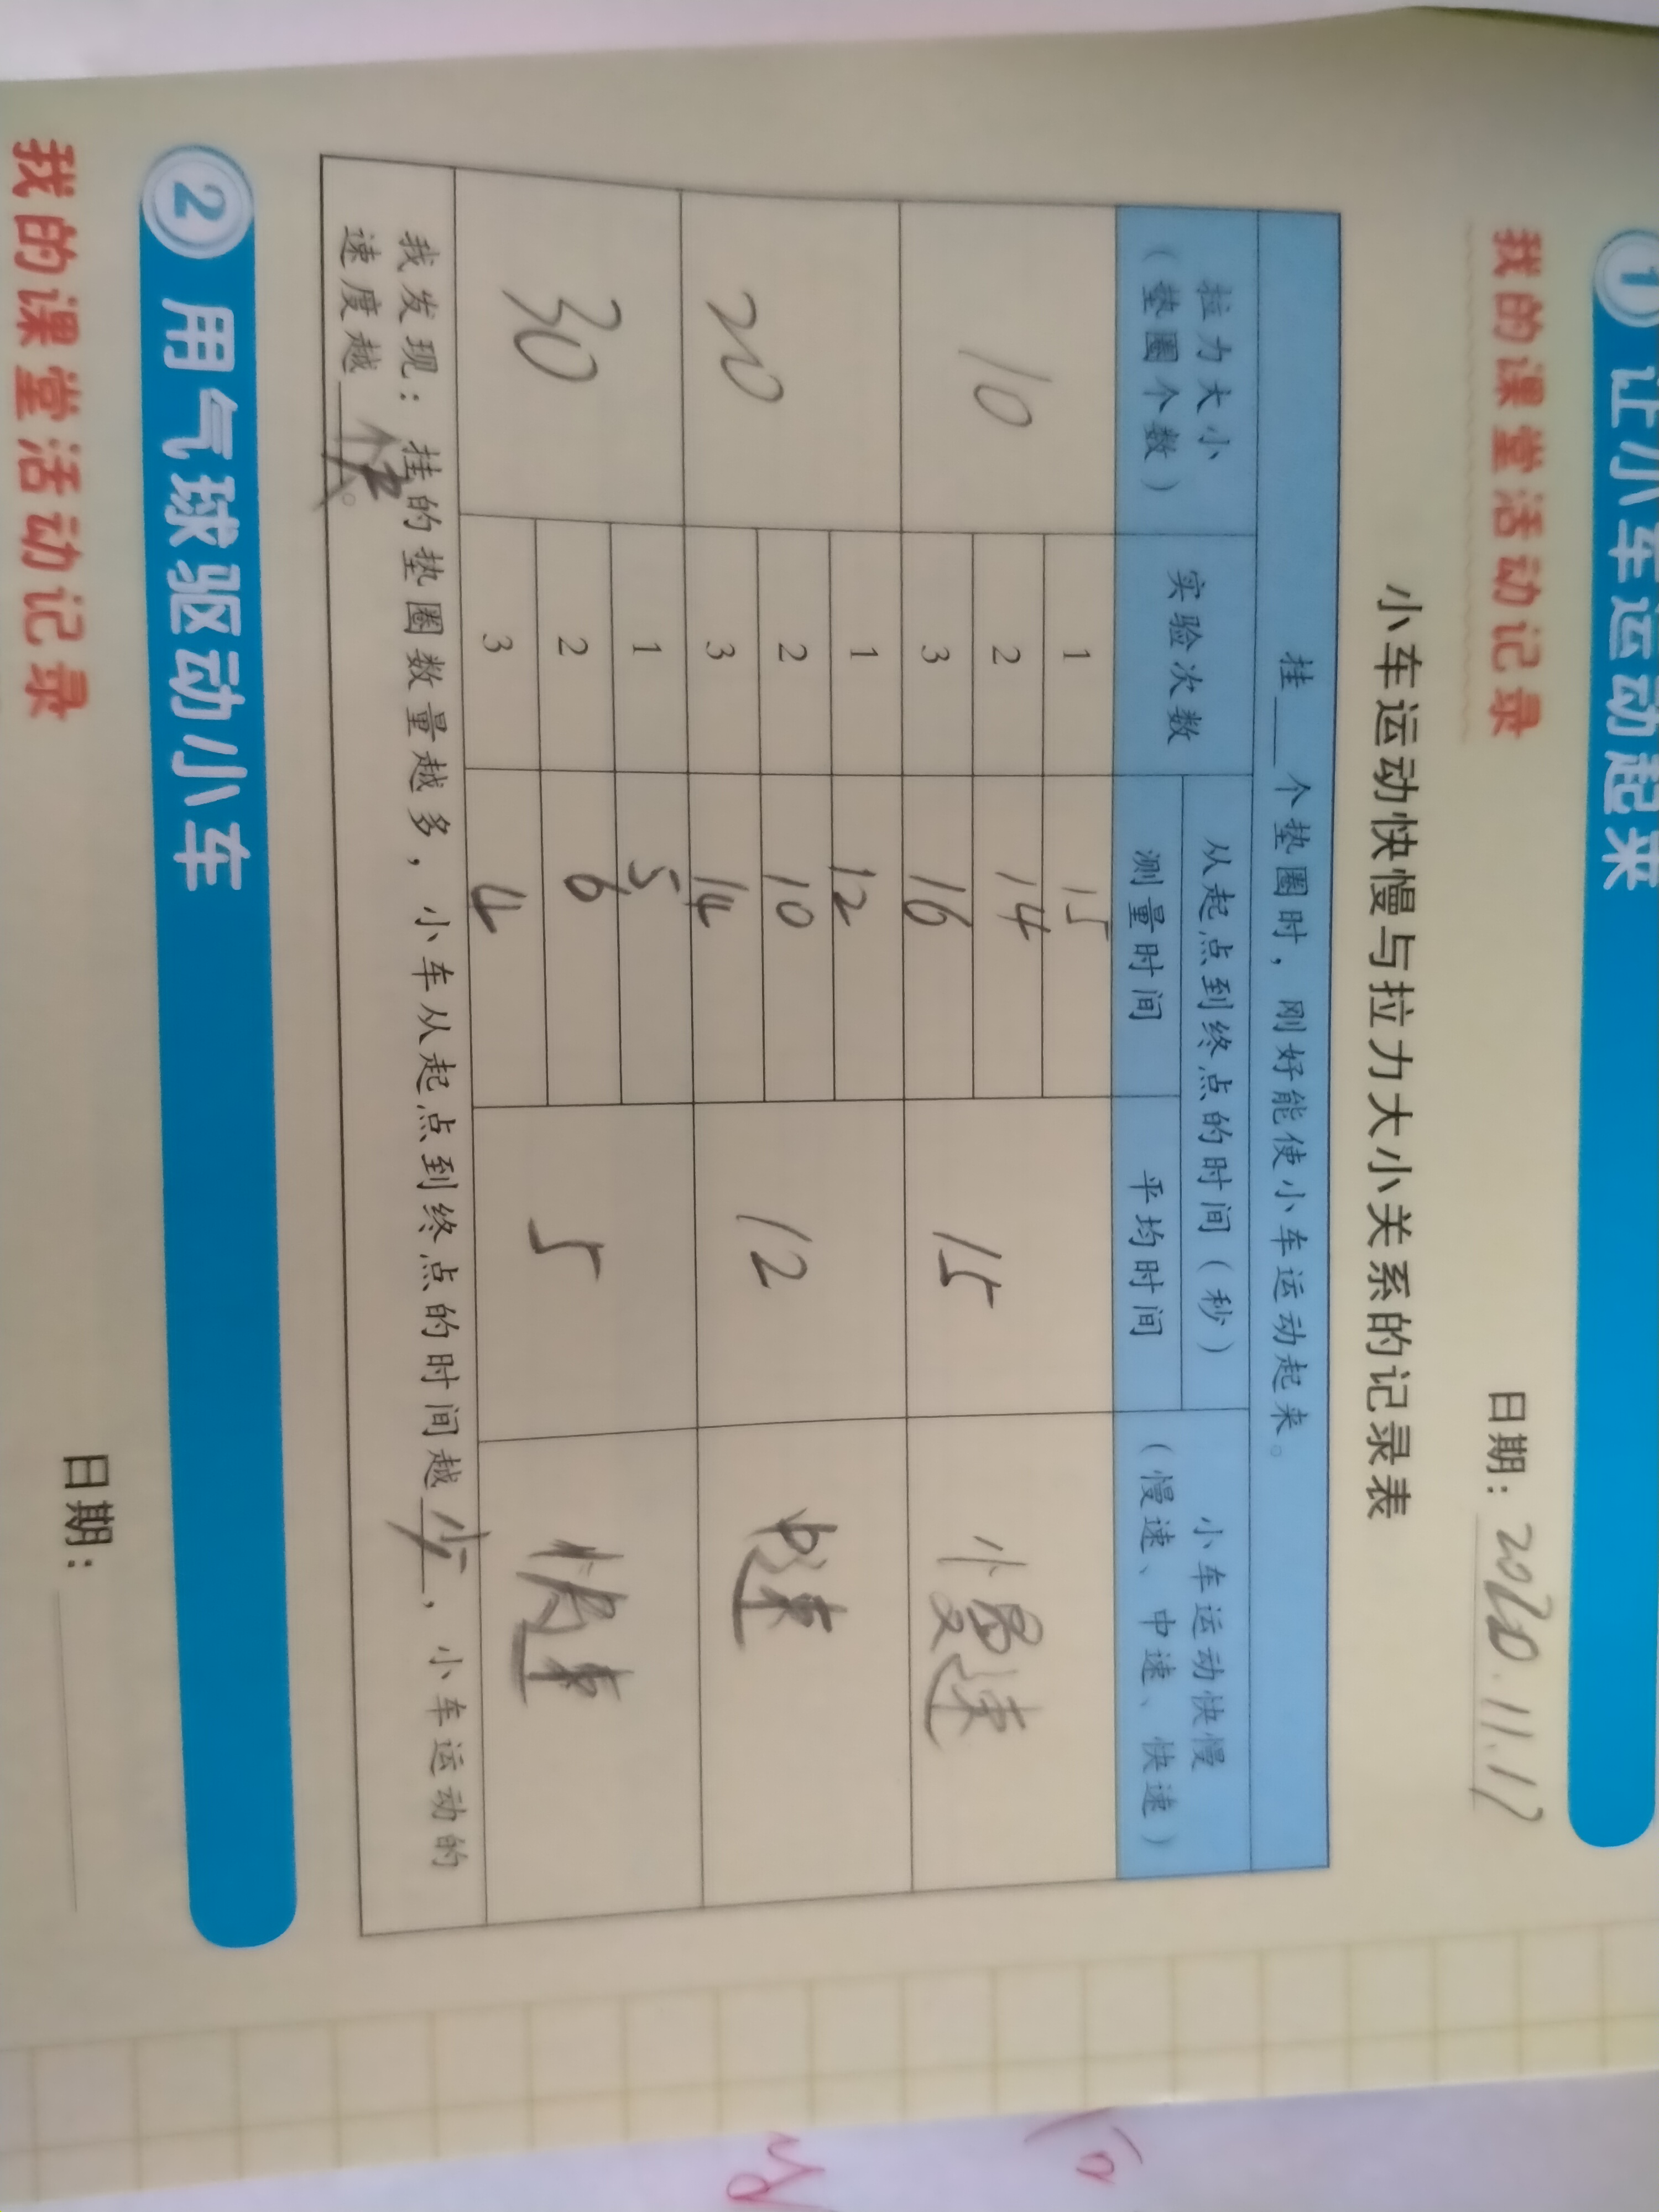 1 让小车运动起来
我的课堂活动记录
日期：2020.11.17
小车运动快慢与拉力大小关系的记录表
挂___个垫圈时，刚好能使小车运动起来。
拉力大小
（垫圈个数）
实验次数
从起点到终点的时间（秒）
测量时间
平均时间
小车运动快慢
（慢速、中速、快速）
10
1 15
2 14
3 16
15
慢速
20
1 12
2 10
3 14
12
中速
30
1 5
2 6
3 4
5
快速
我发现：挂的垫圈数量越多，小车从起点到终点的时间越少，小车运动的
速度越快。
2 用气球驱动小车
我的课堂活动记录
日期：